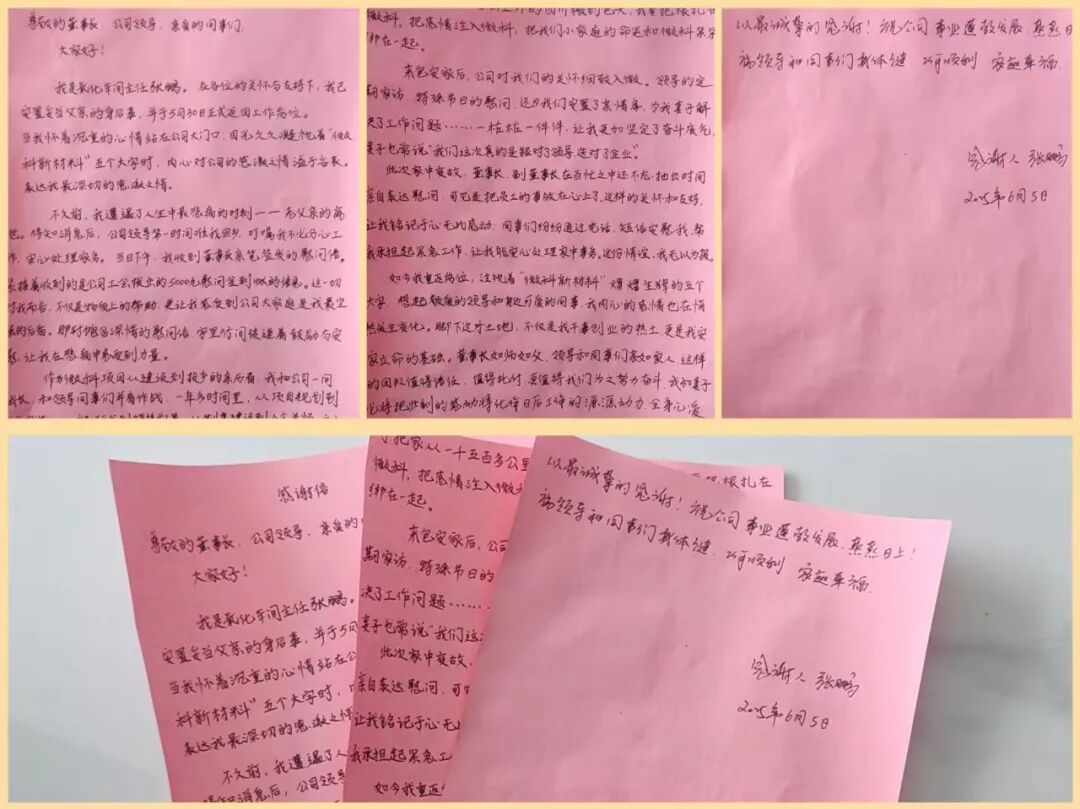 尊敬的董事长、公司领导、亲爱的同事们:
大家好!
我是氧化车间主任张鹏。在各位的关怀与支持下,我已
安置妥当父亲的身后事,并于5月30日正式返回工作岗位。
当我怀着沉重的心情站在公司大门口,目光久久凝视着“微
科新材料”五个大字时,内心对公司的感激之情溢于言表。
表达我最深切的感激之情。
不久前,我遭遇了人生中最悲痛的时刻——老父亲的离
世。得知消息后,公司领导第一时间准我回乡,叮嘱我不必分心工
作,安心处理家务。当日下午,我收到董事长亲笔签发的慰问信。
紧接着收到的是公司工会拨出的5000元慰问金到账的信息。这一切
对我而言,不仅是物质上的帮助,更让我感受到公司大家庭是我最坚
强的后盾。那封饱含深情的慰问信,字里行间传递着鼓励与安
慰,让我在悲痛中感受到力量。
作为微科项目从建设到投产的亲历者,我和公司一同
成长,和领导同事们并肩作战,一年多时间里,从项目规划到
微科,把感情注入微科,把我们小家庭的命运和微科紧紧
绑在一起。
来包安家后,公司对我们的关怀细致入微。领导的定
期家访、特殊节日的慰问,还为我们安置了亲情房,为我妻子解
决了工作问题……一桩桩一件件,让我更加坚定了奋斗底气,
妻子也常说“我们这次真的是跟对了领导,选对了企业”。
此次家中变故,董事长、副董事长在百忙之中还不忘抽出时间
亲自表达慰问,可见是把员工的事放在心上了,这样的关怀和支持,
让我铭记于心无比感动。同事们纷纷通过电话、短信安慰我,帮
我承担起紧急工作,让我能安心处理家中事务。这份情谊,我无以为报。
如今我重返岗位,注视着“微科新材料”熠熠生辉的五个
大字,想起敬爱的领导和身边可爱的同事,我内心的感情也在悄
然发生变化。脚下这片土地,不仅是我干事创业的热土,更是我安
家立命的基础。董事长如师如父,领导和同事们亲如家人,这样
的团队值得信任,值得托付,更值得我们为之努力奋斗,我和妻子
也将把收到的感动转化作日后工作的源源动力,全身心投
以最诚挚的感谢!祝公司事业蓬勃发展,蒸蒸日
祝领导和同事们身体健康,万事顺利,家庭幸福.
感谢人 张鹏
2025年6月5日
感谢信
尊敬的董事长、公司领导、亲爱的
大家好!
我是氧化车间主任张鹏。
安置妥当父亲的身后事,并于5月
当我怀着沉重的心情站在公
科新材料”五个大字时,
表达我最深切的感激之情
不久前,我遭遇了人
得知消息后,公司领导
了把家从一千五百多公里
微科,把感情注入微
绑在一起。
来包安家后,公
期家访、特殊节日的
决了工作问题……
妻子也常说“我们这
此次家中变故,
亲自表达慰问,可
让我铭记于心无
我承担起紧急工
如今我重返
根扎在
以最诚挚的感谢!祝公司事业蓬勃发展,蒸蒸日上!
祝领导和同事们身体健康,万事顺利,家庭幸福.
感谢人 张鹏
2025年6月5日